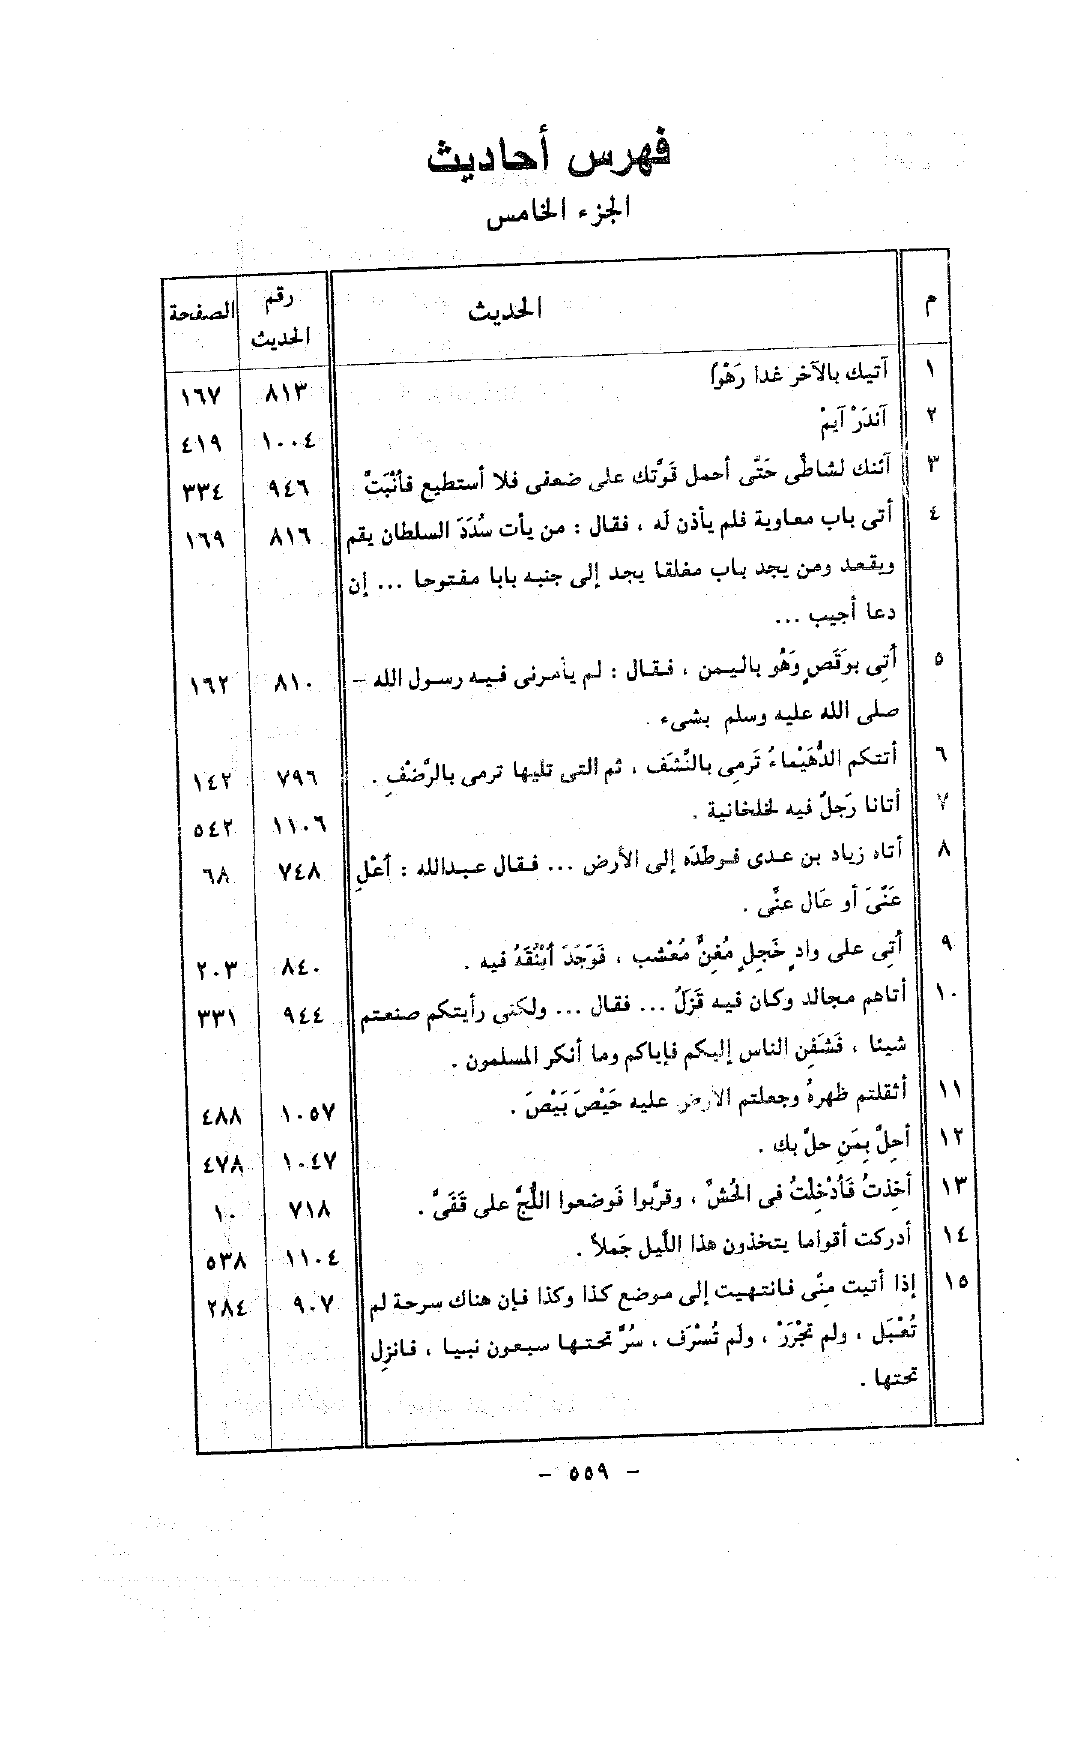 فهرس أحاديث
الجزء الخامس
م الحديث رقم الحديث الصفحة
١ آتيك بالآخر غدا رَهْوًا ٨١٣ ١٦٧
٢ آندَرْ آيمْ ١٠٠٤ ٤١٩
٣ آئنك لشاطِّى حَتَّى أحمل قوَّتك على ضعفى فلا أستطيع فأنْبَتَّ ٩٤٦ ٣٣٤
٤ أتى باب معاوية فلم يأذن لَه ، فقال : من يأت سُدَدَ السلطان يقم ٨١٦ ١٦٩
ويقعد ومن يجد باب مغلقا يجد إلى جنبه بابا مفتوحا ... إن
دعا أجيب ...
٥ أُتِى بوَقَصٍ وَهُو باليمن ، فقال : لم يأمرنى فيه رسول الله – ٨١٠ ١٦٢
صلى الله عليه وسلم بشىء .
٦ أتتكم الدُّهَيْماءُ تَرمِى بالنَّشَف ، ثم التى تليها ترمى بالرَّضْفِ . ٧٩٦ ١٤٢
٧ أتانا رَجلٌ فيه لخلخانية . ١١٠٦ ٥٤٢
٨ أتاه زياد بن عدى فوطَدَه إلى الأرض ... فقال عبدالله : أعْلِ ٧٤٨ ٦٨
عَنَّىَ أو عَال عنَّى .
٩ أتِى على وادٍ خَجِلٍ مُغِنٍّ مُعْشب ، فَوَجَدَ أيْنُقَهُ فيه . ٨٤٠ ٢٠٣
١٠ أتاهم مجالد وكان فيه قَزَلٌ ... فقال ... ولكنى رأيتكم صنعتم ٩٤٤ ٣٣١
شيئا ، فَشَفِن الناس إليكم فإياكم وما أنكر المسلمون .
١١ أثقلتم ظهرهُ وجعلتم الأرض عليه حَيْصَ بَيْصَ . ١٠٥٧ ٤٨٨
١٢ أحِلَّ بِمَنِ حلَّ بك . ١٠٤٧ ٤٧٨
١٣ أخِذتُ فَأدْخِلْتُ فى الحُشِّ ، وقرَّبوا فَوضعوا اللُّجَّ على قَفَىَّ . ٧١٨ ١٠
١٤ أدركت أقواما يتخذون هذا اللَّيل جَملاً . ١١٠٤ ٥٣٨
١٥ إذا أتيت منَّى فانتهيت إلى موضع كذا وكذا فإن هناك سرحة لم ٩٠٧ ٢٨٤
تُعْبَل ، ولم تجْرَدْ ، ولَم تُسْرَف ، سُرَّ تحتها سبعون نبيا ، فانزِل
تحتها .
– ٥٥٩ –